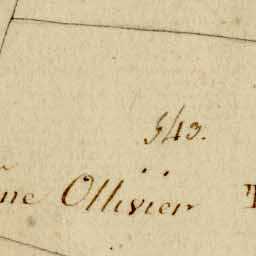 543.
ne Ollivier